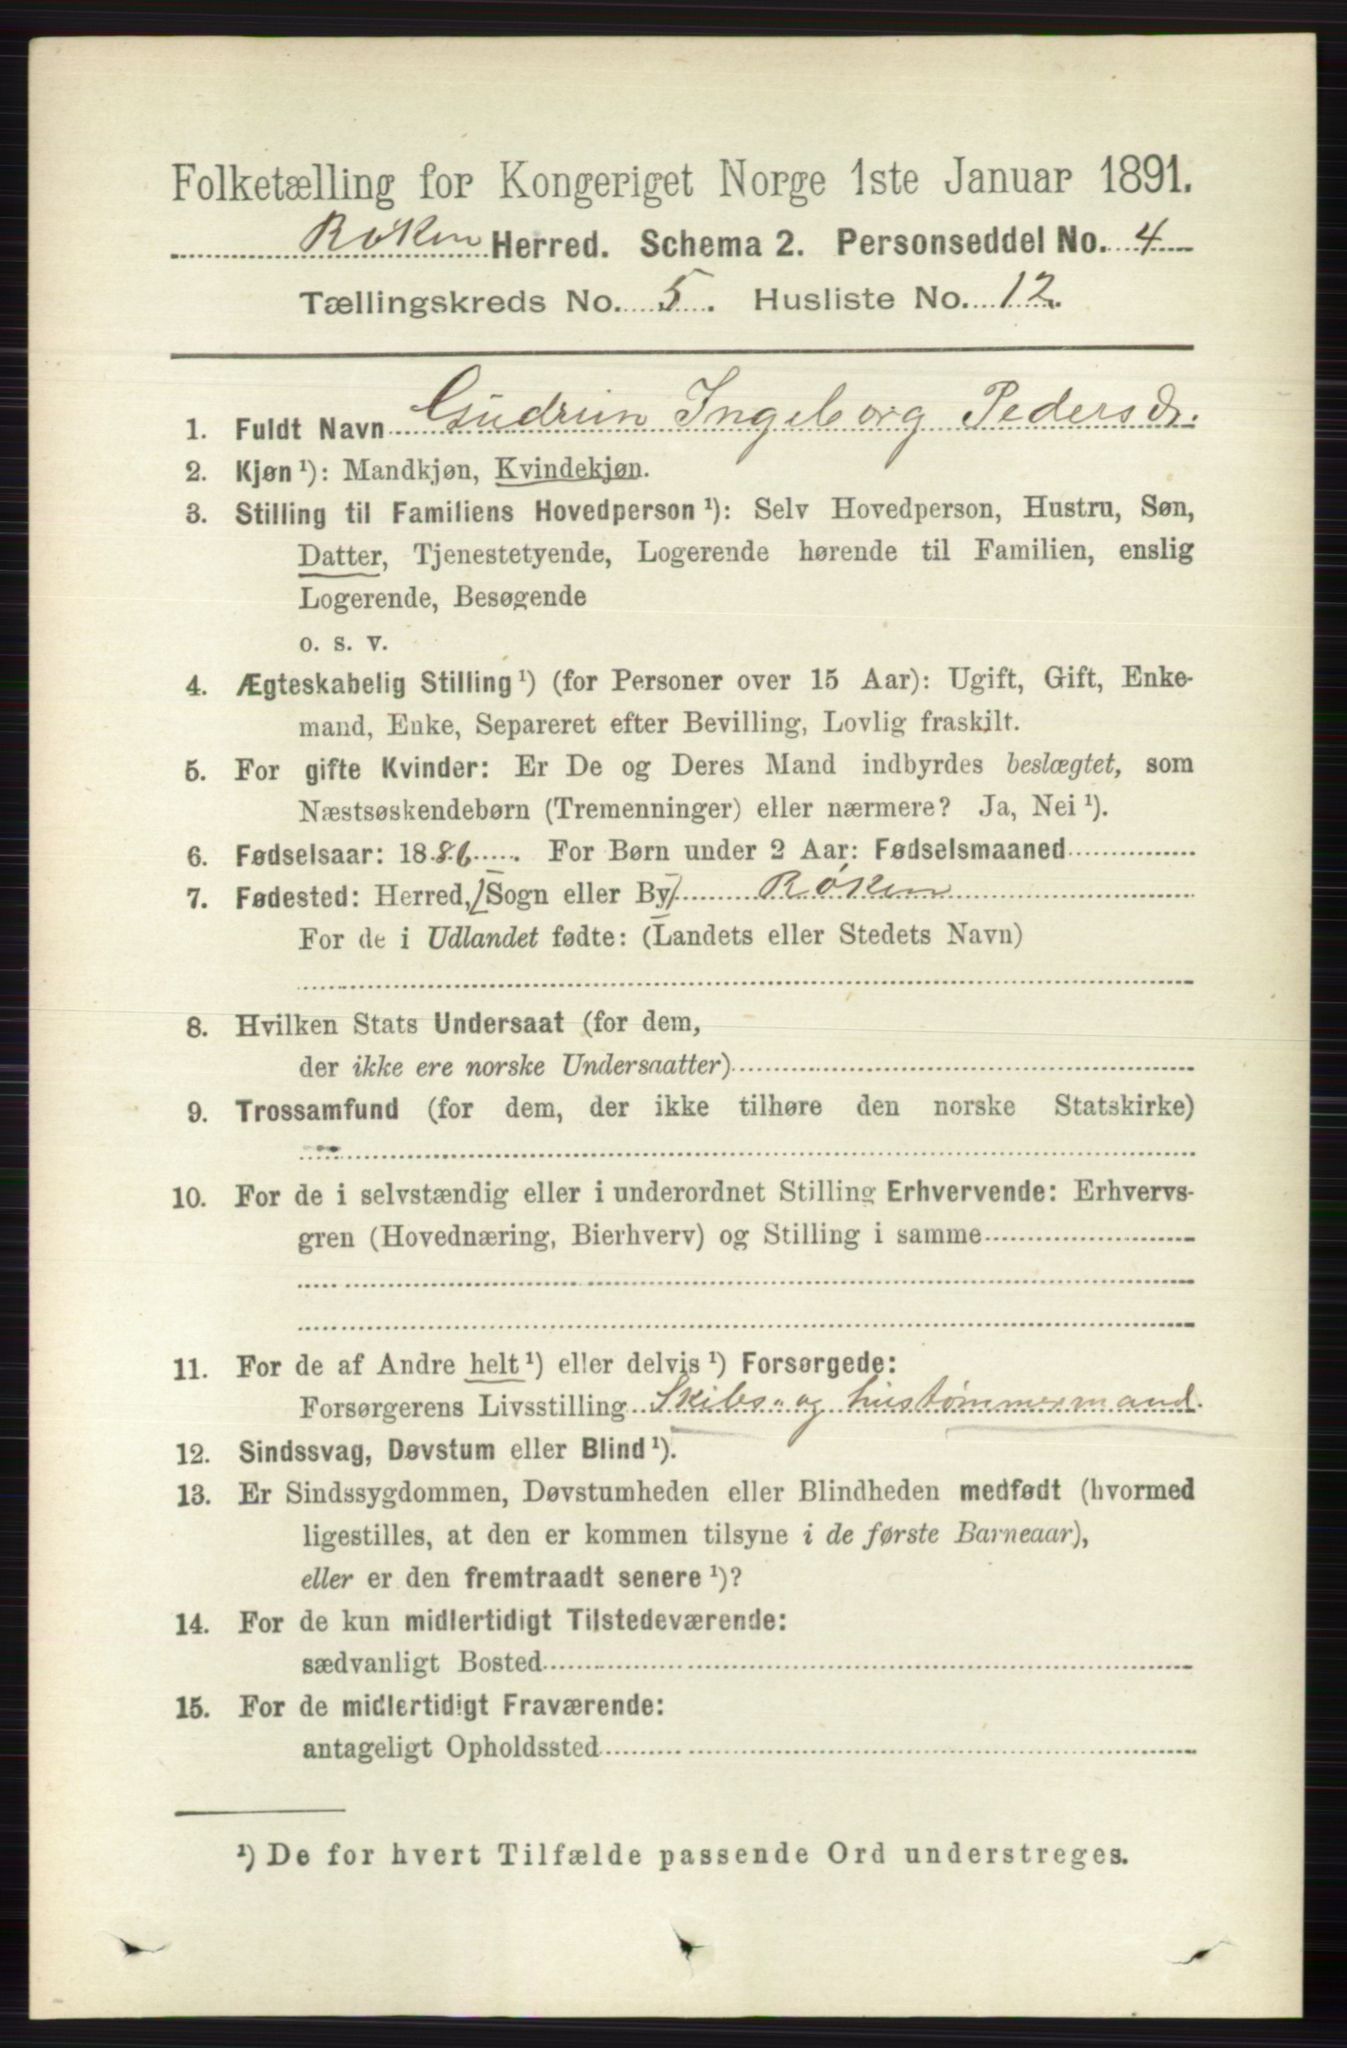 Folketælling for Kongeriget Norge 1ste Januar 1891.
Røken Herred. Schema 2. Personseddel No. 4
Tællingskreds No. 5. Husliste No. 12.
1. Fuldt Navn Gudrun Ingeborg Pedersdr.
2. Kjøn ¹): Mandkjøn, Kvindekjøn.
3. Stilling til Familiens Hovedperson ¹): Selv Hovedperson, Hustru, Søn,
Datter, Tjenestetyende, Logerende hørende til Familien, enslig
Logerende, Besøgende
o. s. v.
4. Ægteskabelig Stilling ¹) (for Personer over 15 Aar): Ugift, Gift, Enke-
mand, Enke, Separeret efter Bevilling, Lovlig fraskilt.
5. For gifte Kvinder: Er De og Deres Mand indbyrdes beslægtet, som
Næstsøskendebørn (Tremenninger) eller nærmere? Ja, Nei ¹).
6. Fødselsaar: 1886. For Børn under 2 Aar: Fødselsmaaned
7. Fødested: Herred, [Sogn eller By] Røken
For de i Udlandet fødte: (Landets eller Stedets Navn)
8. Hvilken Stats Undersaat (for dem,
der ikke ere norske Undersaatter)
9. Trossamfund (for dem, der ikke tilhøre den norske Statskirke)
10. For de i selvstændig eller i underordnet Stilling Erhvervende: Erhvervs-
gren (Hovednæring, Bierhverv) og Stilling i samme
11. For de af Andre helt ¹) eller delvis ¹) Forsørgede:
Forsørgerens Livsstilling Skibs- og hustømmermand.
12. Sindssvag, Døvstum eller Blind ¹).
13. Er Sindssygdommen, Døvstumheden eller Blindheden medfødt (hvormed
ligestilles, at den er kommen tilsyne i de første Barneaar),
eller er den fremtraadt senere ¹)?
14. For de kun midlertidigt Tilstedeværende:
sædvanligt Bosted
15. For de midlertidigt Fraværende:
antageligt Opholdssted
¹) De for hvert Tilfælde passende Ord understreges.